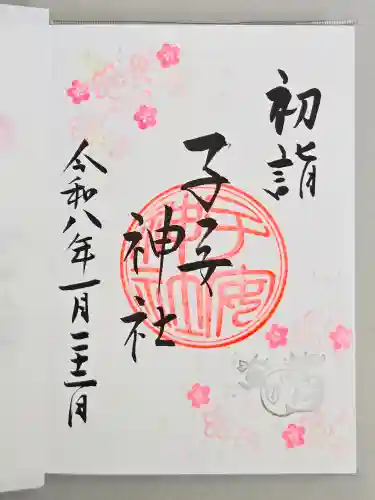 初詣
子安
神社
令和八年一月二十一日
子安
神社